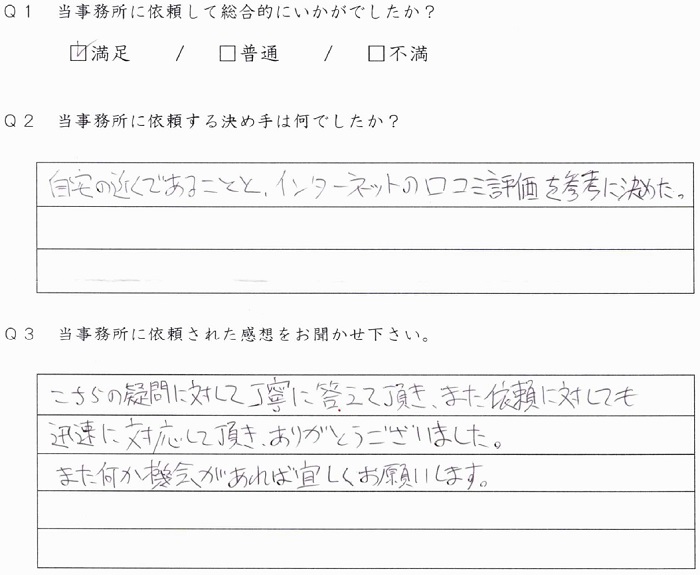 Q1 当事務所に依頼して総合的にいかがでしたか?
☑満足 / □普通 / □不満
Q2 当事務所に依頼する決め手は何でしたか?
自宅の近くであることと、インターネットの口コミ評価を参考に決めた。
Q3 当事務所に依頼された感想をお聞かせ下さい。
こちらの疑問に対して丁寧に答えて頂き、また依頼に対しても
迅速に対応して頂き、ありがとうございました。
また何か機会があれば宜しくお願いします。